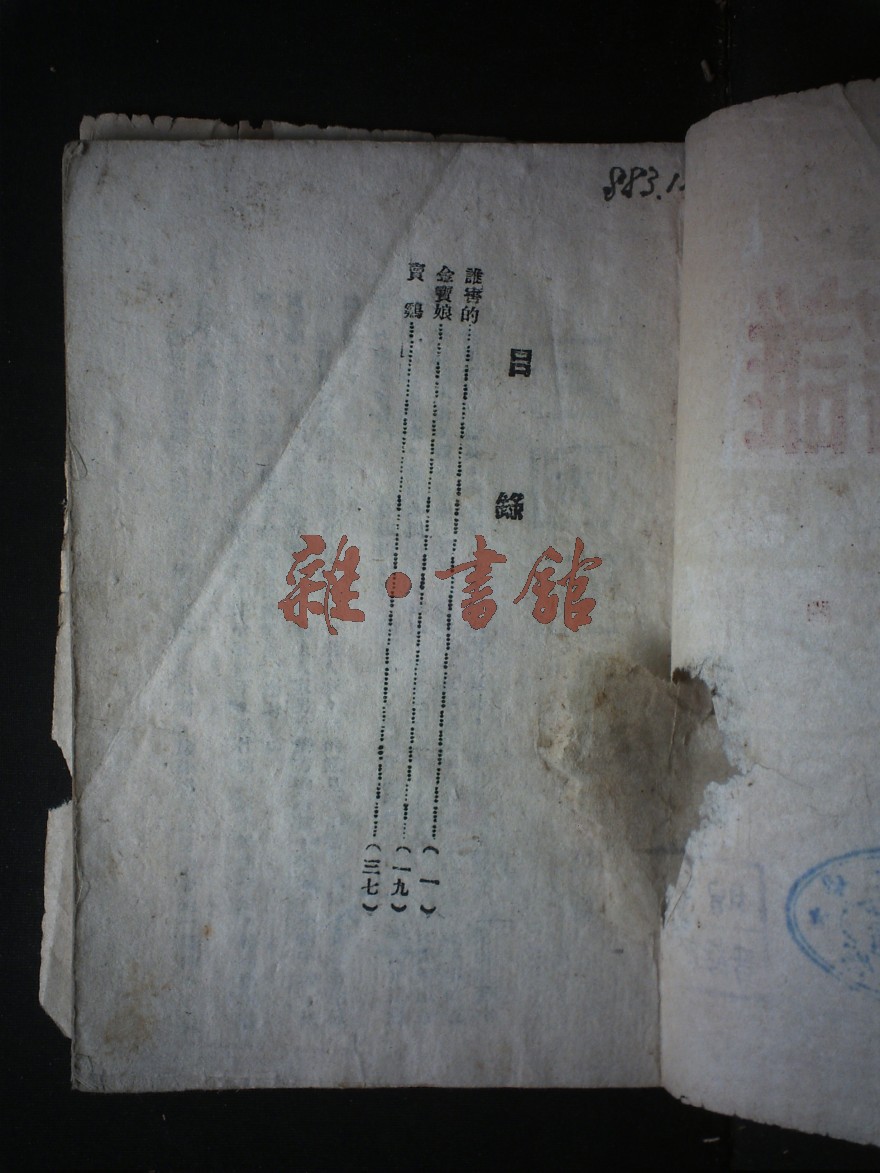 883.1
目錄
誰害的……(一)
金寶娘……(一九)
賣 鷄……(三七)
雜·書館